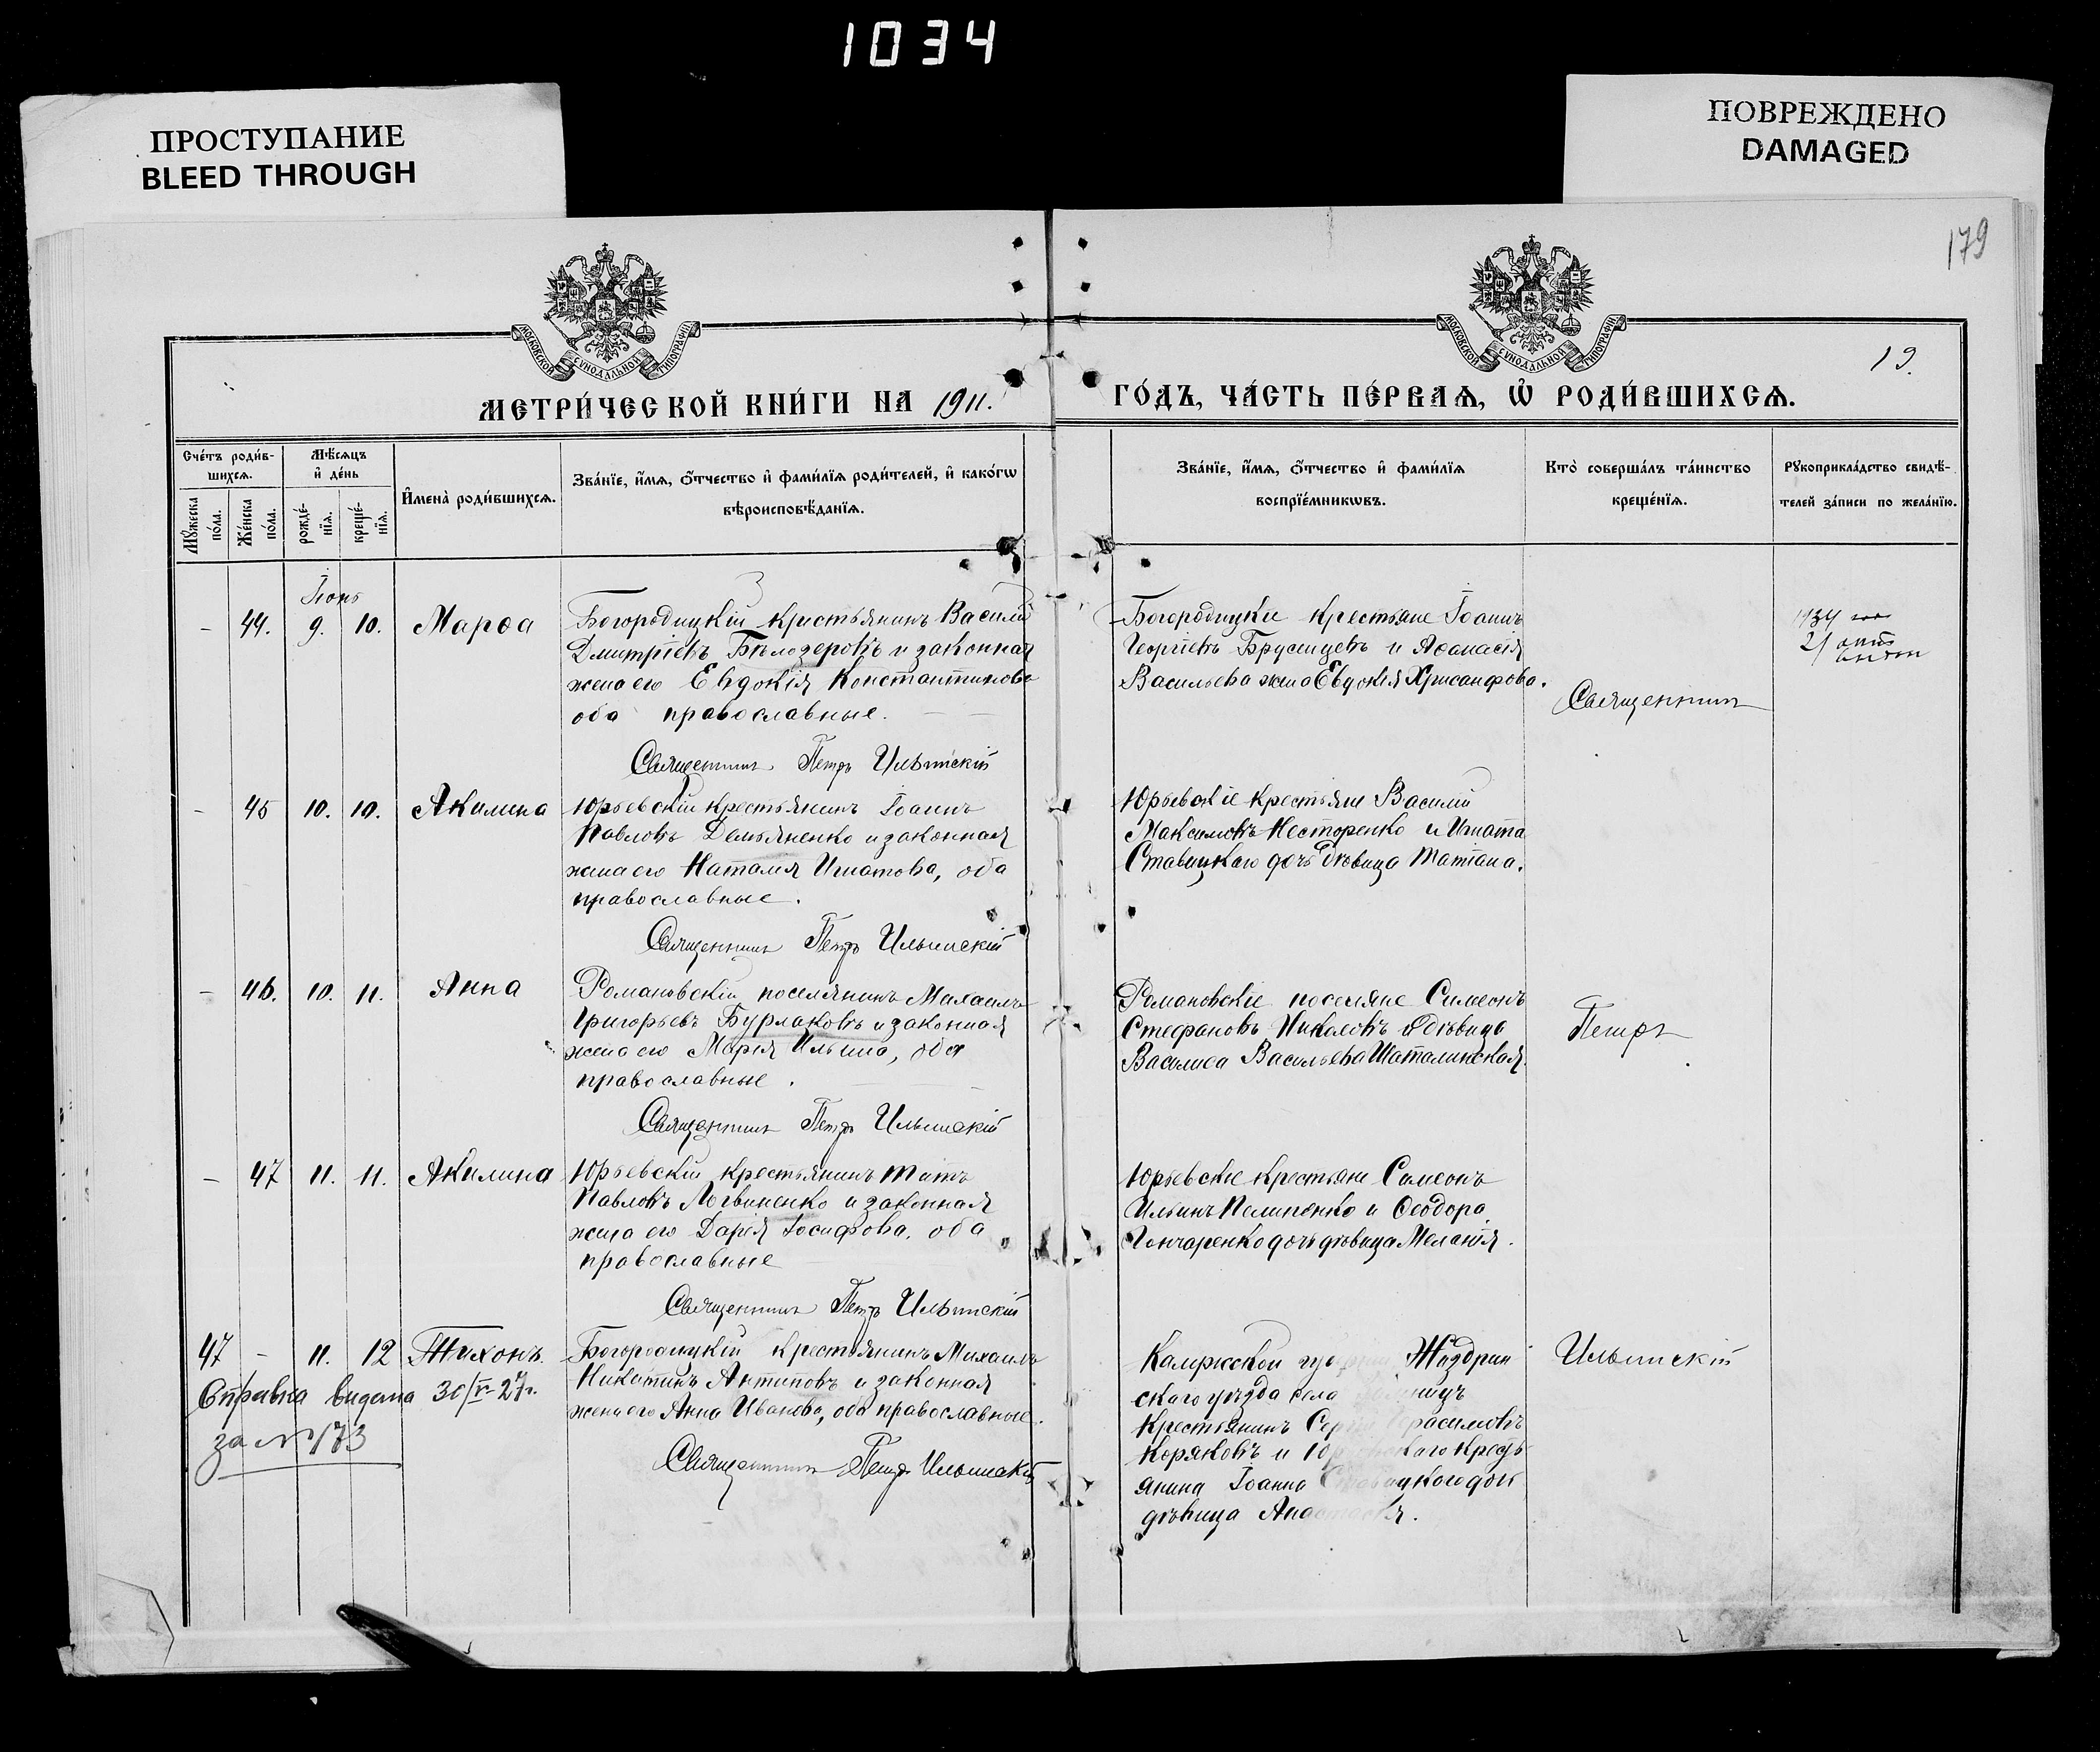 1034
ПРОСТУПАНИЕ
BLEED THROUGH
ПОВРЕЖДЕНО
DAMAGED
179
МОСКОВСКОЙ СУНОДАЛЬНОЙ ТИПОГРАФІИ
МОСКОВСКОЙ СУНОДАЛЬНОЙ ТИПОГРАФІИ
19.
МЕТРИ́ЧЕСКОЙ КНИ́ГИ НА 1911.
ГО́ДЪ, ЧА́СТЬ ПЕ́РВАѦ, Ѡ҆ РОДИ́ВШИХСѦ.
Сче́тъ роди́в-
шихсѧ.
Мꙋ́жеска по́ла.
Же́нска по́ла.
Мѣ́сѧцъ
и҆ де́нь
рожде́-
нїѧ.
креще́-
нїѧ.
И҆мена̀ роди́вшихсѧ.
Зва́нїе, и҆́мѧ, ѻ҆́тчество и҆ фами́лїѧ роди́телей, и҆ како́гѡ
вѣроисповѣ́данїѧ.
Зва́нїе, и҆́мѧ, ѻ҆́тчество и҆ фами́лїѧ
воспрїе́мникѡвъ.
Кто̀ соверша́лъ та́инство
креще́нїѧ.
Рꙋкоприкла́дство свидѣ́-
телей за́писи по жела́нїю.
Іюнь
- 44. 9. 10. Марѳа
Богородицкій крестьянинъ Василій
Дмитріевъ Бѣлозеровъ и законная
жена его Евдокія Константинова
оба православные.
Священникъ Петръ Ильинскій
Богородицкіе крестьяне Іоаннъ
Георгіевъ Брусенцевъ и Аѳанасія
Васильева жена Евдокія Хрисанфова.
Священникъ
1934
21
- 45 10. 10. Акилина
Юрьевскій крестьянинъ Іоаннъ
Павловъ Демьяненко и законная
жена его Наталія Игнатова, оба
православные.
Священникъ Петръ Ильинскій
Юрьевскіе крестьяне Василій
Максимовъ Несторенко и Игната
Ставицкаго дочь дѣвица Татіана.
- 46. 10. 11. Анна
Романовскій поселянинъ Михаилъ
Григорьевъ Бурлаковъ и законная
жена его Марія Ильина, оба
православные.
Священникъ Петръ Ильинскій
Романовскіе поселяне Симеонъ
Стефановъ Николовъ и дѣвица
Василиса Васильева Шаталинская.
Петръ
- 47 11. 11. Акилина
Юрьевскій крестьянинъ Титъ
Павловъ Логвиненко и законная
жена его Дарія Іосифова, оба
православные
Священникъ Петръ Ильинскій
Юрьевскіе крестьяне Симеонъ
Ильинъ Пелипенко и Ѳеодора
Гончаренко дочь дѣвица Меланія.
47 - 11. 12 Тихонъ.
Богородицкій крестьянинъ Михаилъ
Никитинъ Антиповъ и законная
жена его Анна Иванова, оба православные.
Священникъ Петръ Ильинскій
Калужской Жиздрин
скаго уѣзда села
крестьянинъ Сергій Герасимовъ
Коряковъ и Юрьевскаго кресть
янина Іоанна Ставицкаго дочь
дѣвица Анастасія.
Ильинскій
Справка видана 30/IV-27г.
за № 173